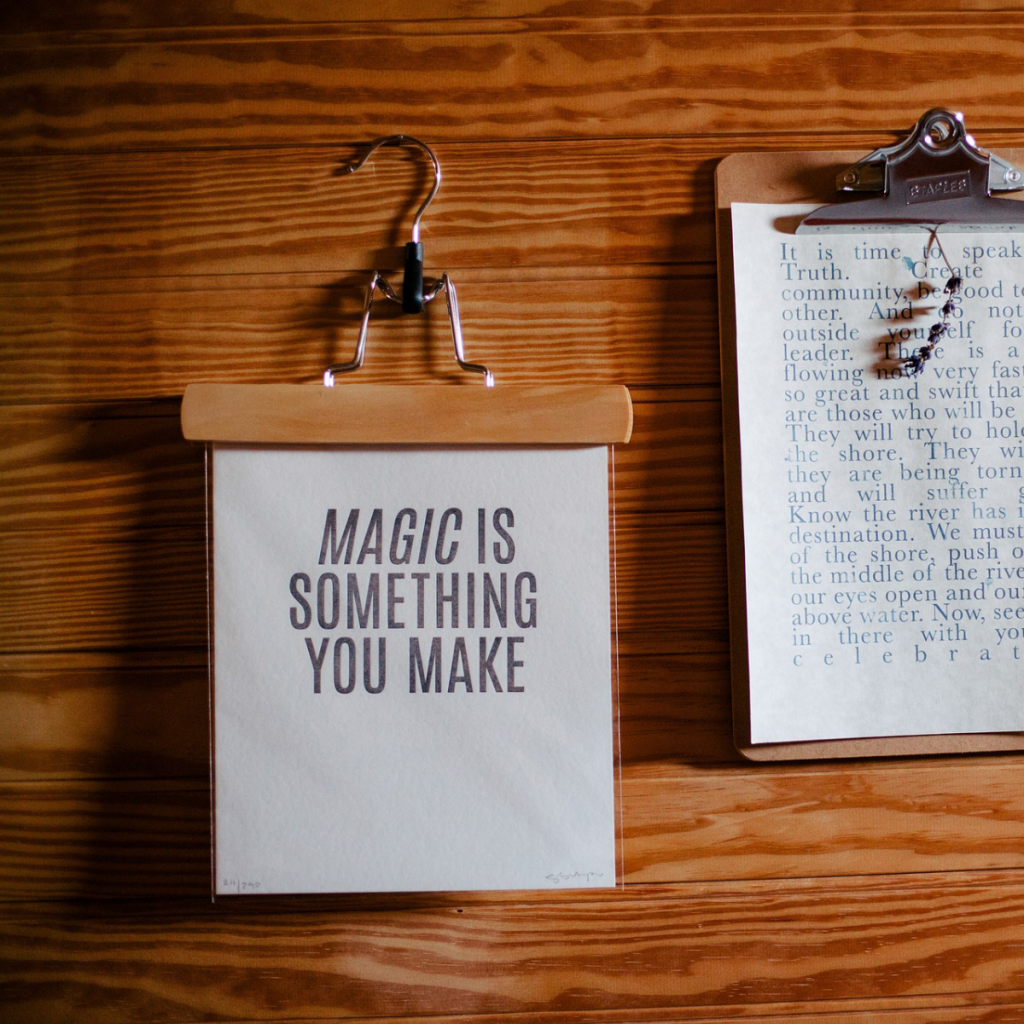 MAGIC IS
SOMETHING
YOU MAKE
STAPLES
It is time to speak
Truth. Create
community, be good to
other. And do not
outside yourself fo
leader. There is a
flowing now very fast
so great and swift tha
are those who will be
They will try to hold
the shore. They wi
they are being torn
and will suffer g
Know the river has i
destination. We must
of the shore, push o
the middle of the rive
our eyes open and our
above water. Now, see
in there with you
celebrat